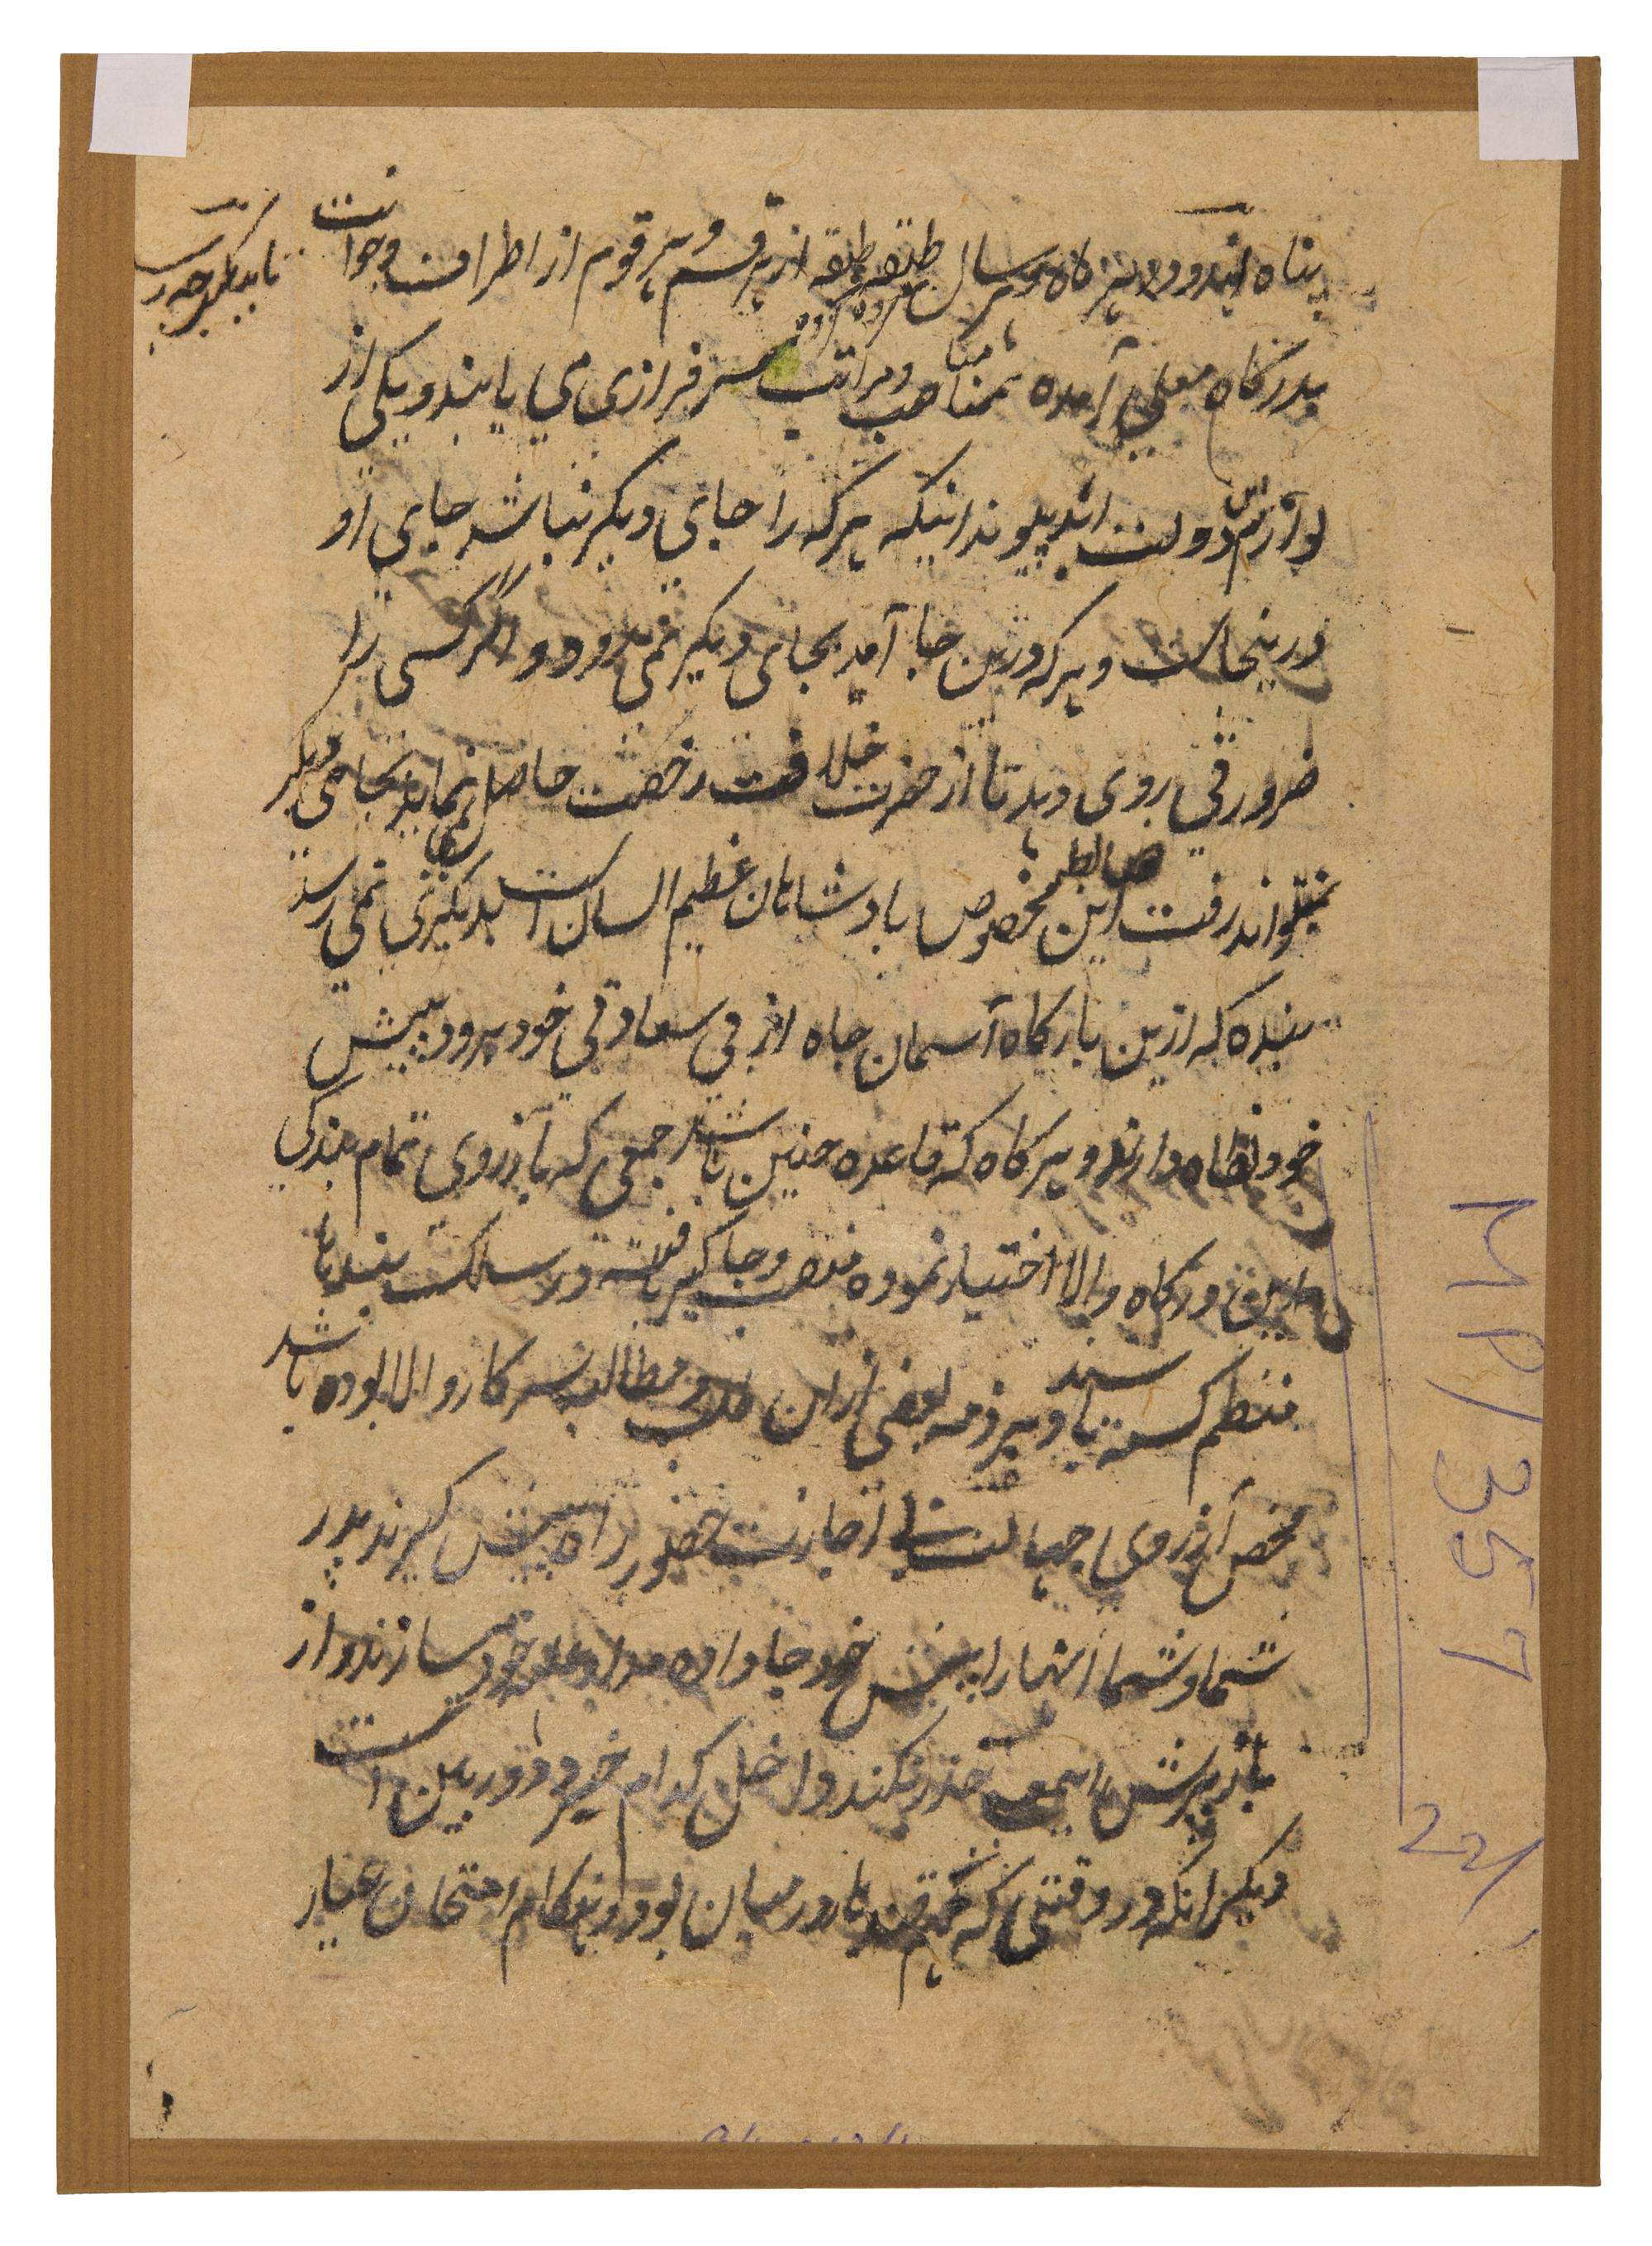 پناه اندوو هر ماه و هر سال طلقه طلقه از هر قسم و هر قوم از اطراف و جوانب
بدرگاه معلی آمده بمناصب و مراتب سرفرازی می یابند و یکی از
لوازم دولت ابد پیوند اینکه هر که را جای دیگر نباشد جای او
درینجاست و هر که درین جا آمد بجای دیگر نمی رود و اگر کسی را
ضرورتی روی دهد تا از حضرت خلافت رخصت حاصل ننماید بجای دیگر
نمیتواند رفت این ضابطه مخصوص بادشاهان عظیم الشان است بدیگری نمی رسد
بنده که ازین بارگاه آسمان جاه از بی سعادتی خود برود پیش
خود نگاه دارند و هر گاه که قاعده چنین باشد جمعی که بآرزوی تمام بندگی
این درگاه والا اختیار نموده منصب و جاگیر یافته در سلک بندها
منتظم گشته باشند و بر ذمه بعضی ازان مطالب سرکار والا بوده باشد
محض از روی جهالت بی اجازت حضور راه پیش گیرند پدر
شما و شما آنها را پیش خود جا داده سازند و از
باز پرس حذر نکنند داخل کدام خرد دوربین است
دیگر آنکه در وقتی که در میان بود و هنگام امتحان عیار
MP/357
22/